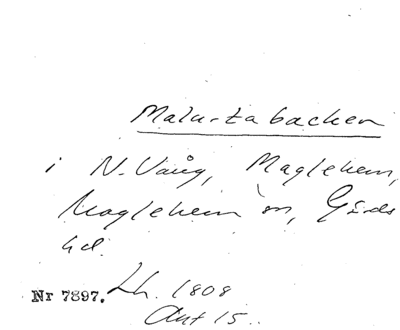 Malu-ta backen
i N. Vång, Maglehem,
Maglehem sn, Gärds
hd.
Nr 7897. Lh. 1808
Akt 15.